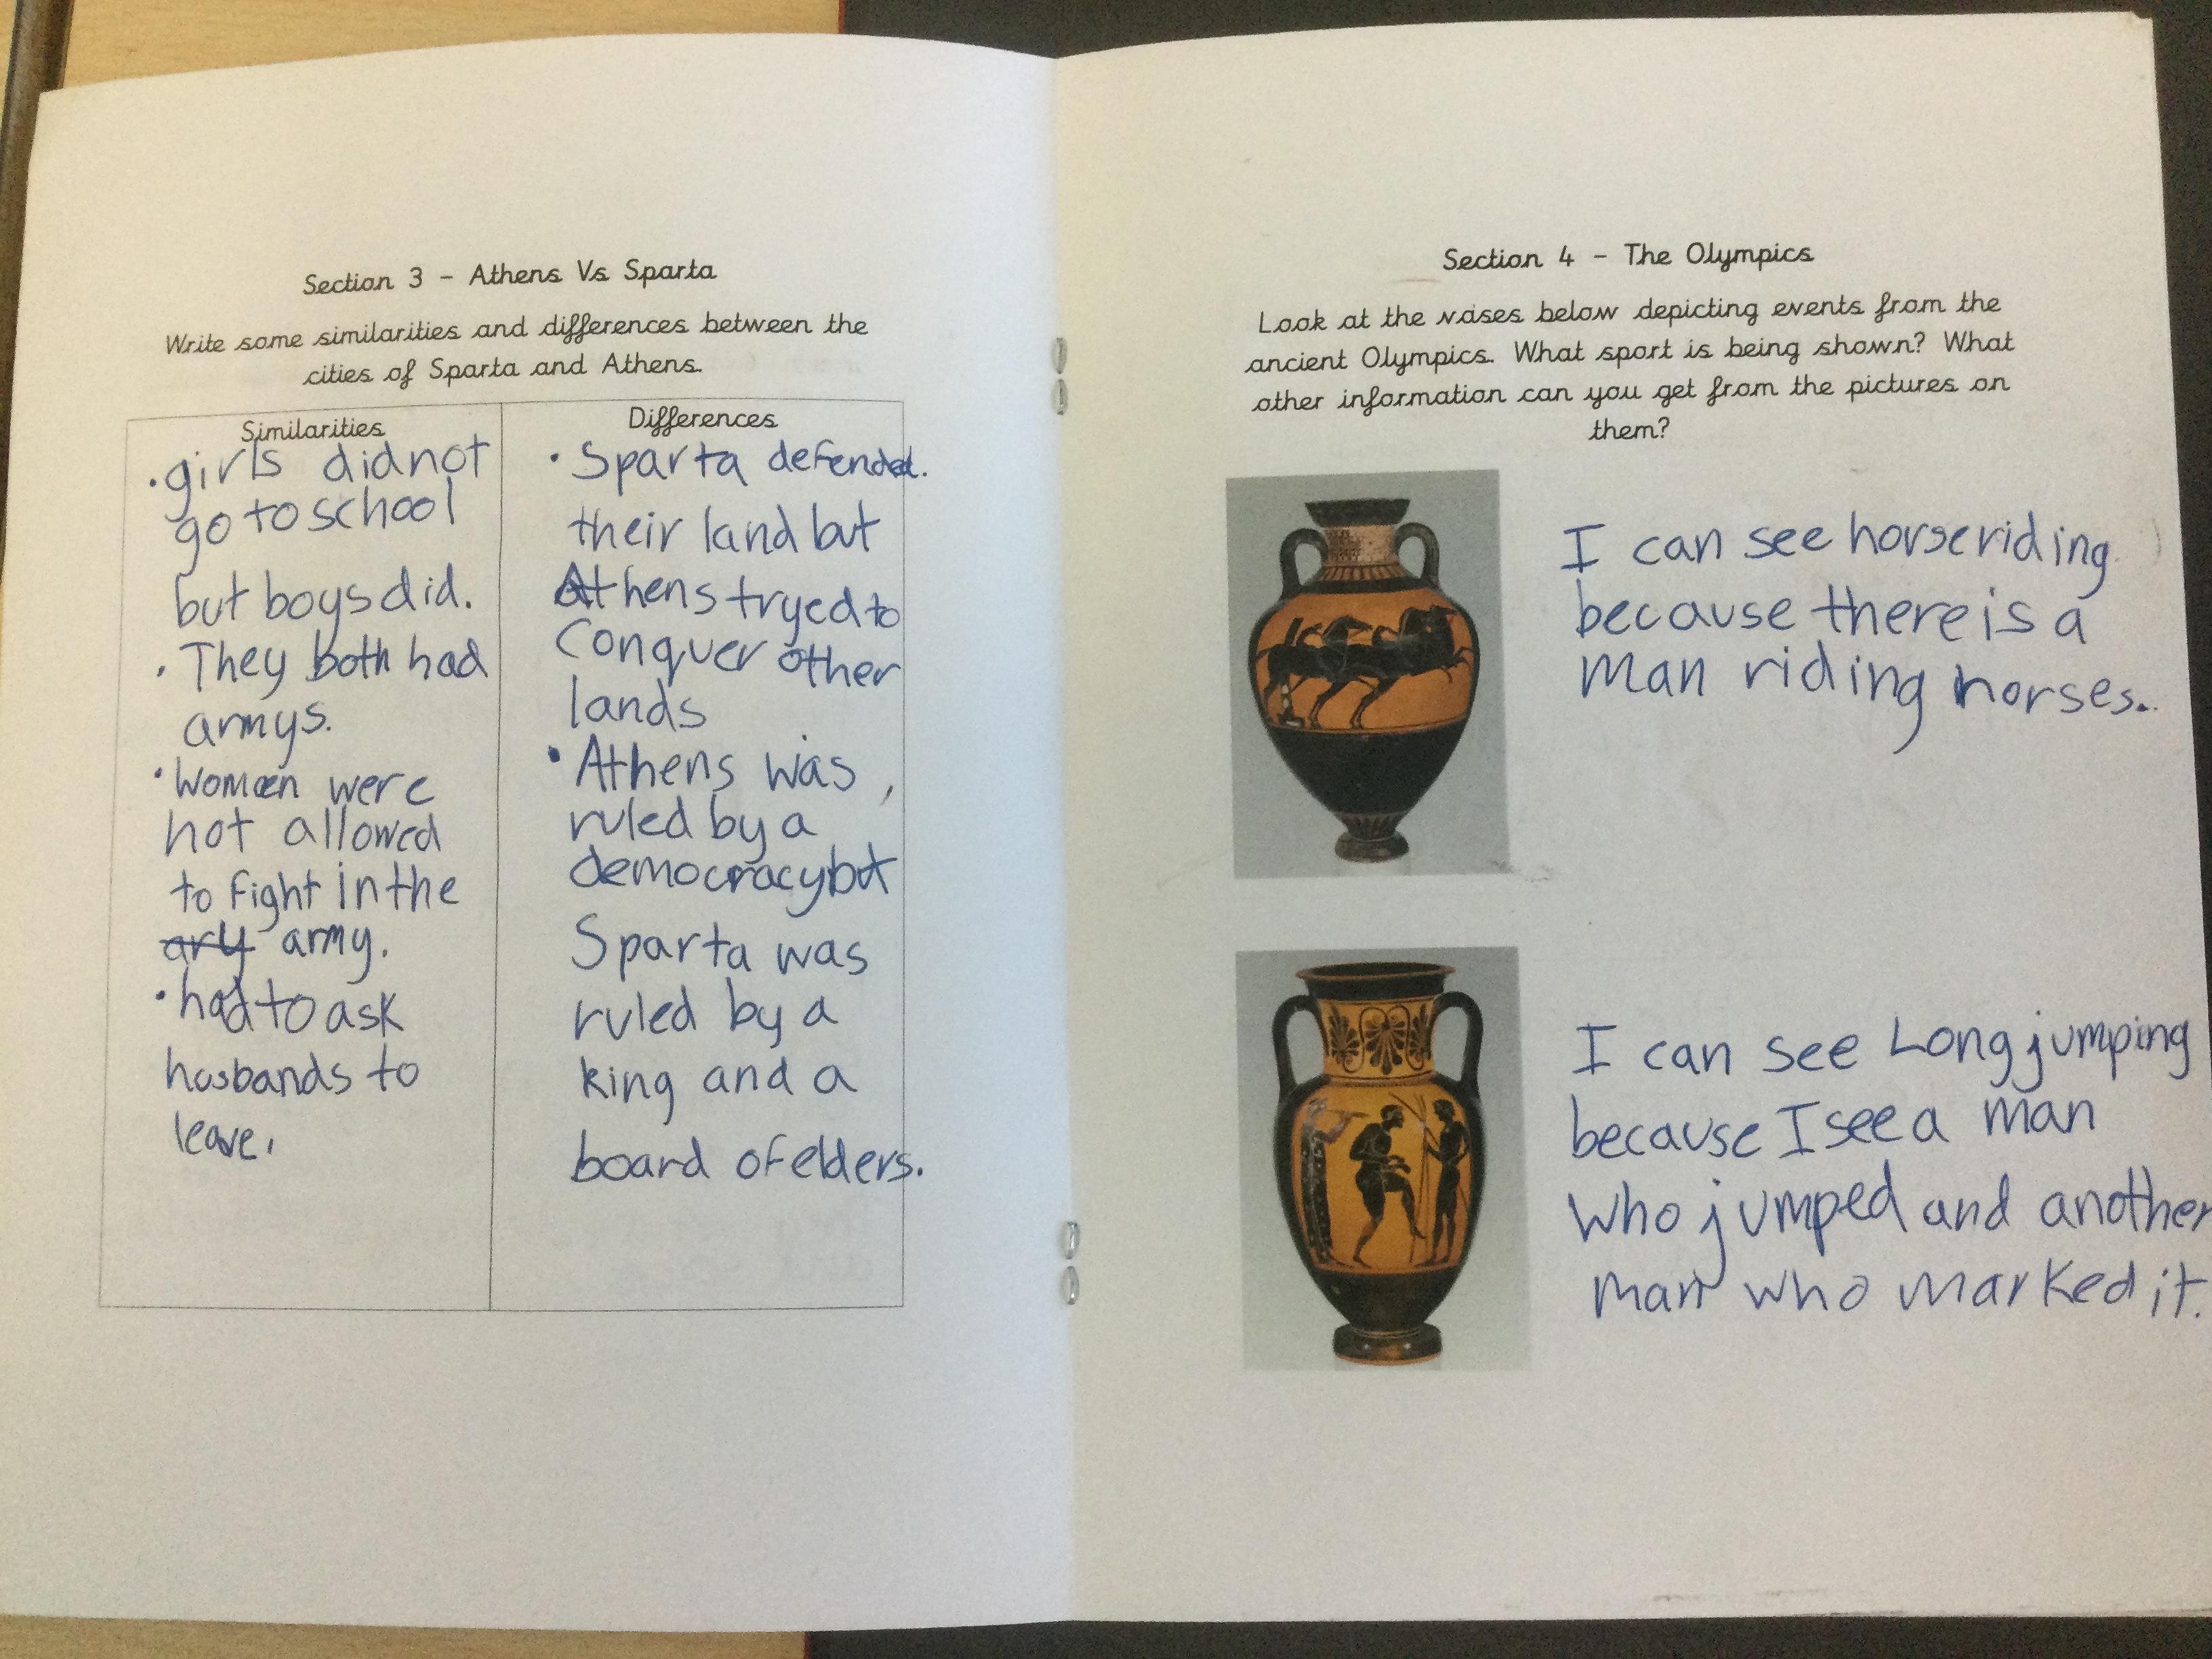 Section 3 - Athens Vs Sparta
Write some similarities and differences between the
cities of Sparta and Athens.
Similarities
• girls did not
go to school
but boys did.
• They both had
armys.
• Women were
not allowed
to fight in the
ary army.
• had to ask
husbands to
leave.
Differences
• Sparta defended.
their land but
Athens tryed to
Conquer other
lands
• Athens was,
ruled by a
democracy but
Sparta was
ruled by a
king and a
board of elders.
Section 4 - The Olympics
Look at the vases below depicting events from the
ancient Olympics. What sport is being shown? What
other information can you get from the pictures on
them?
I can see horse riding
because there is a
man riding horses.
I can see Long jumping
because I see a man
who jumped and another
man who marked it.